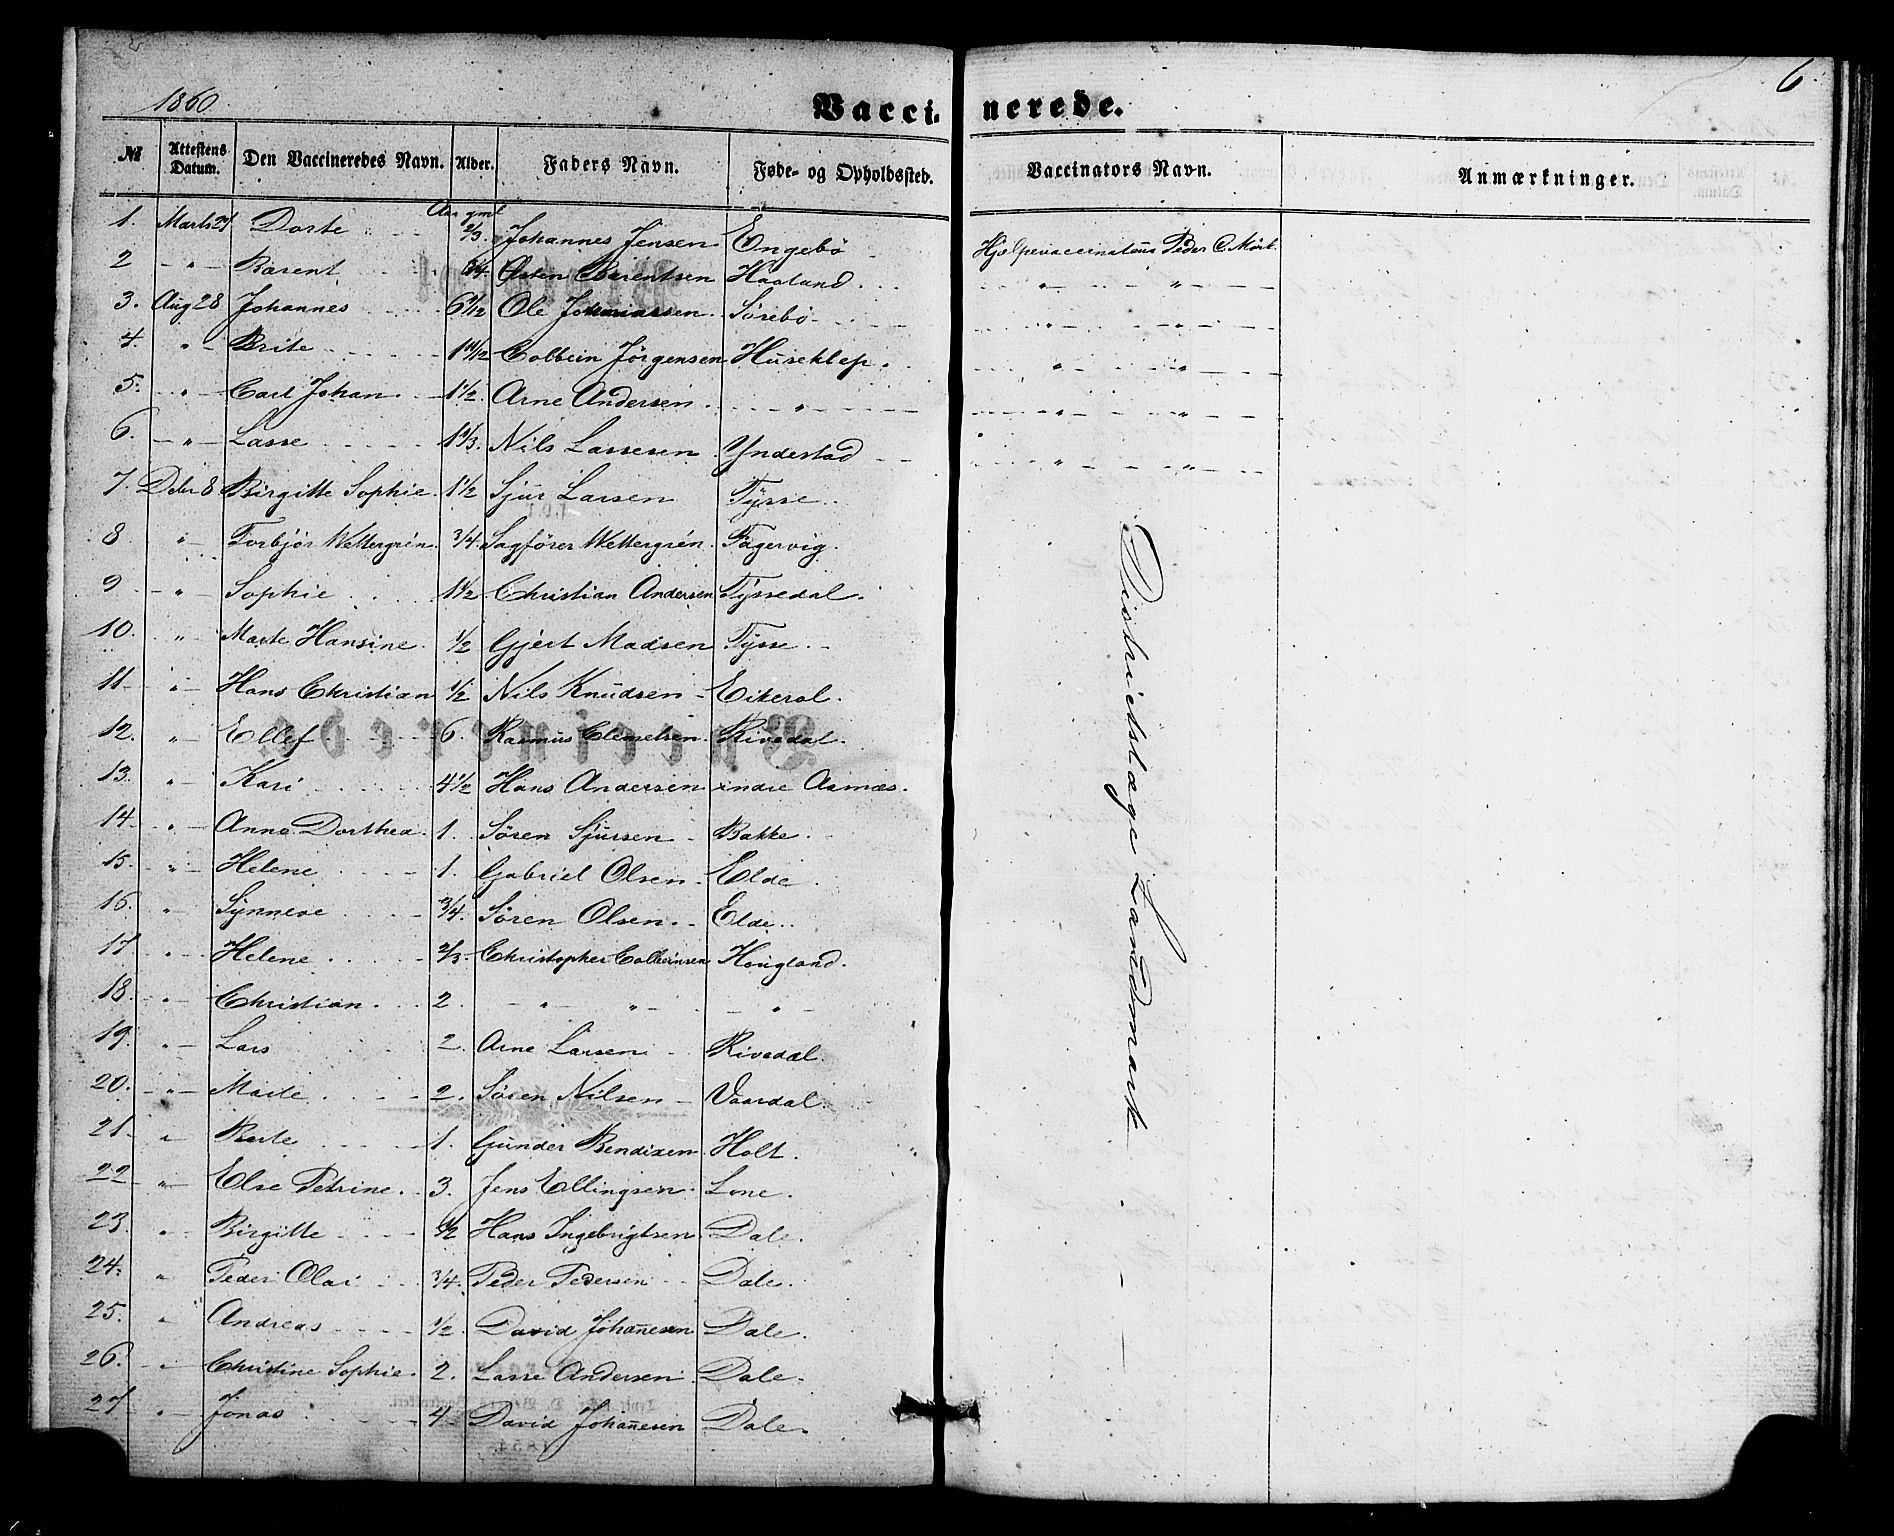 1860.
Vaccinerede.
6.
№ Attestens Datum. Den Vaccineredes Navn. Alder. Faders Navn. Føde- og Opholdssted. Vaccinators Navn. Anmærkninger.
Aar gml
1. Marts 21 Dorte 2/3. Johannes Jensen Engebö Hjelpevaccinateur Peder C.
2 - " - Barent Østen Barentsen Haaland - " - - " -
3. Aug 28 Johannes 6 1/2 Ole Sörebö - " - - " -
4. " - Brite Colbein Jörgensen Huseklep - " - - " -
5. - " - Carl Johan 1 1/2 Arne Andersen - " - - " - - " -
6. - " - Lasse 1 1/3. Nils Lassesen Yndestad - " - - " -
7. Deber 8 Birgitte Sophie. 1 1/2 Sjur Larsen Tysse Districtslæge Landmark
8 " - Torbjör Wettergrén 3/4. Sagförer Wettergrén. Fagervig.
9 - " - Sophie 1 1/2 Christian Andersen Tyssedal.
10. " - Marte Hansine. 1/2 Gjert Madsen Tysse.
11 - " - Hans Christian 1/2 Nils Knudsen - Eikerol.
12. " - Ellef 6. Rasmus Clemetsen. Rivedal.
13. " - Kari 4 1/2 Hans Andersen indre Aamæs.
14. - " - Anna Dorthea. 1. Sören Sjursen - Bakke.
15. " - Helene 1. Gabriel Olsen - Elde.
16. " - Synneve 3/4. Sören Olsen. - Elde.
17. " - Helene 2/3. Christopher Colbeinsen Hougland.
18. - " - Christian. 2. - " - " - - " -
19. " - Lars 2. Arne Larsen - Rivedal.
20. - " - Marte 2. Sören Nilsen - Vaardal.
21. " Berte 1. Gunder Bendixen Holt.
22 " - Else Petrine. 3. Jens Ellingsen. Lone.
23. " - Birgitte 1/2 Hans Ingebrigtsen. Dale.
24. " Peder Olai 3/4. Peder Pedersen Dale.
25. " Andreas 1/2. David Johanesen Dale.
26. " - Christine Sophie. 2. Lasse Andersen. Dale.
27. " - Jonas 4. David Johanesen Dale.